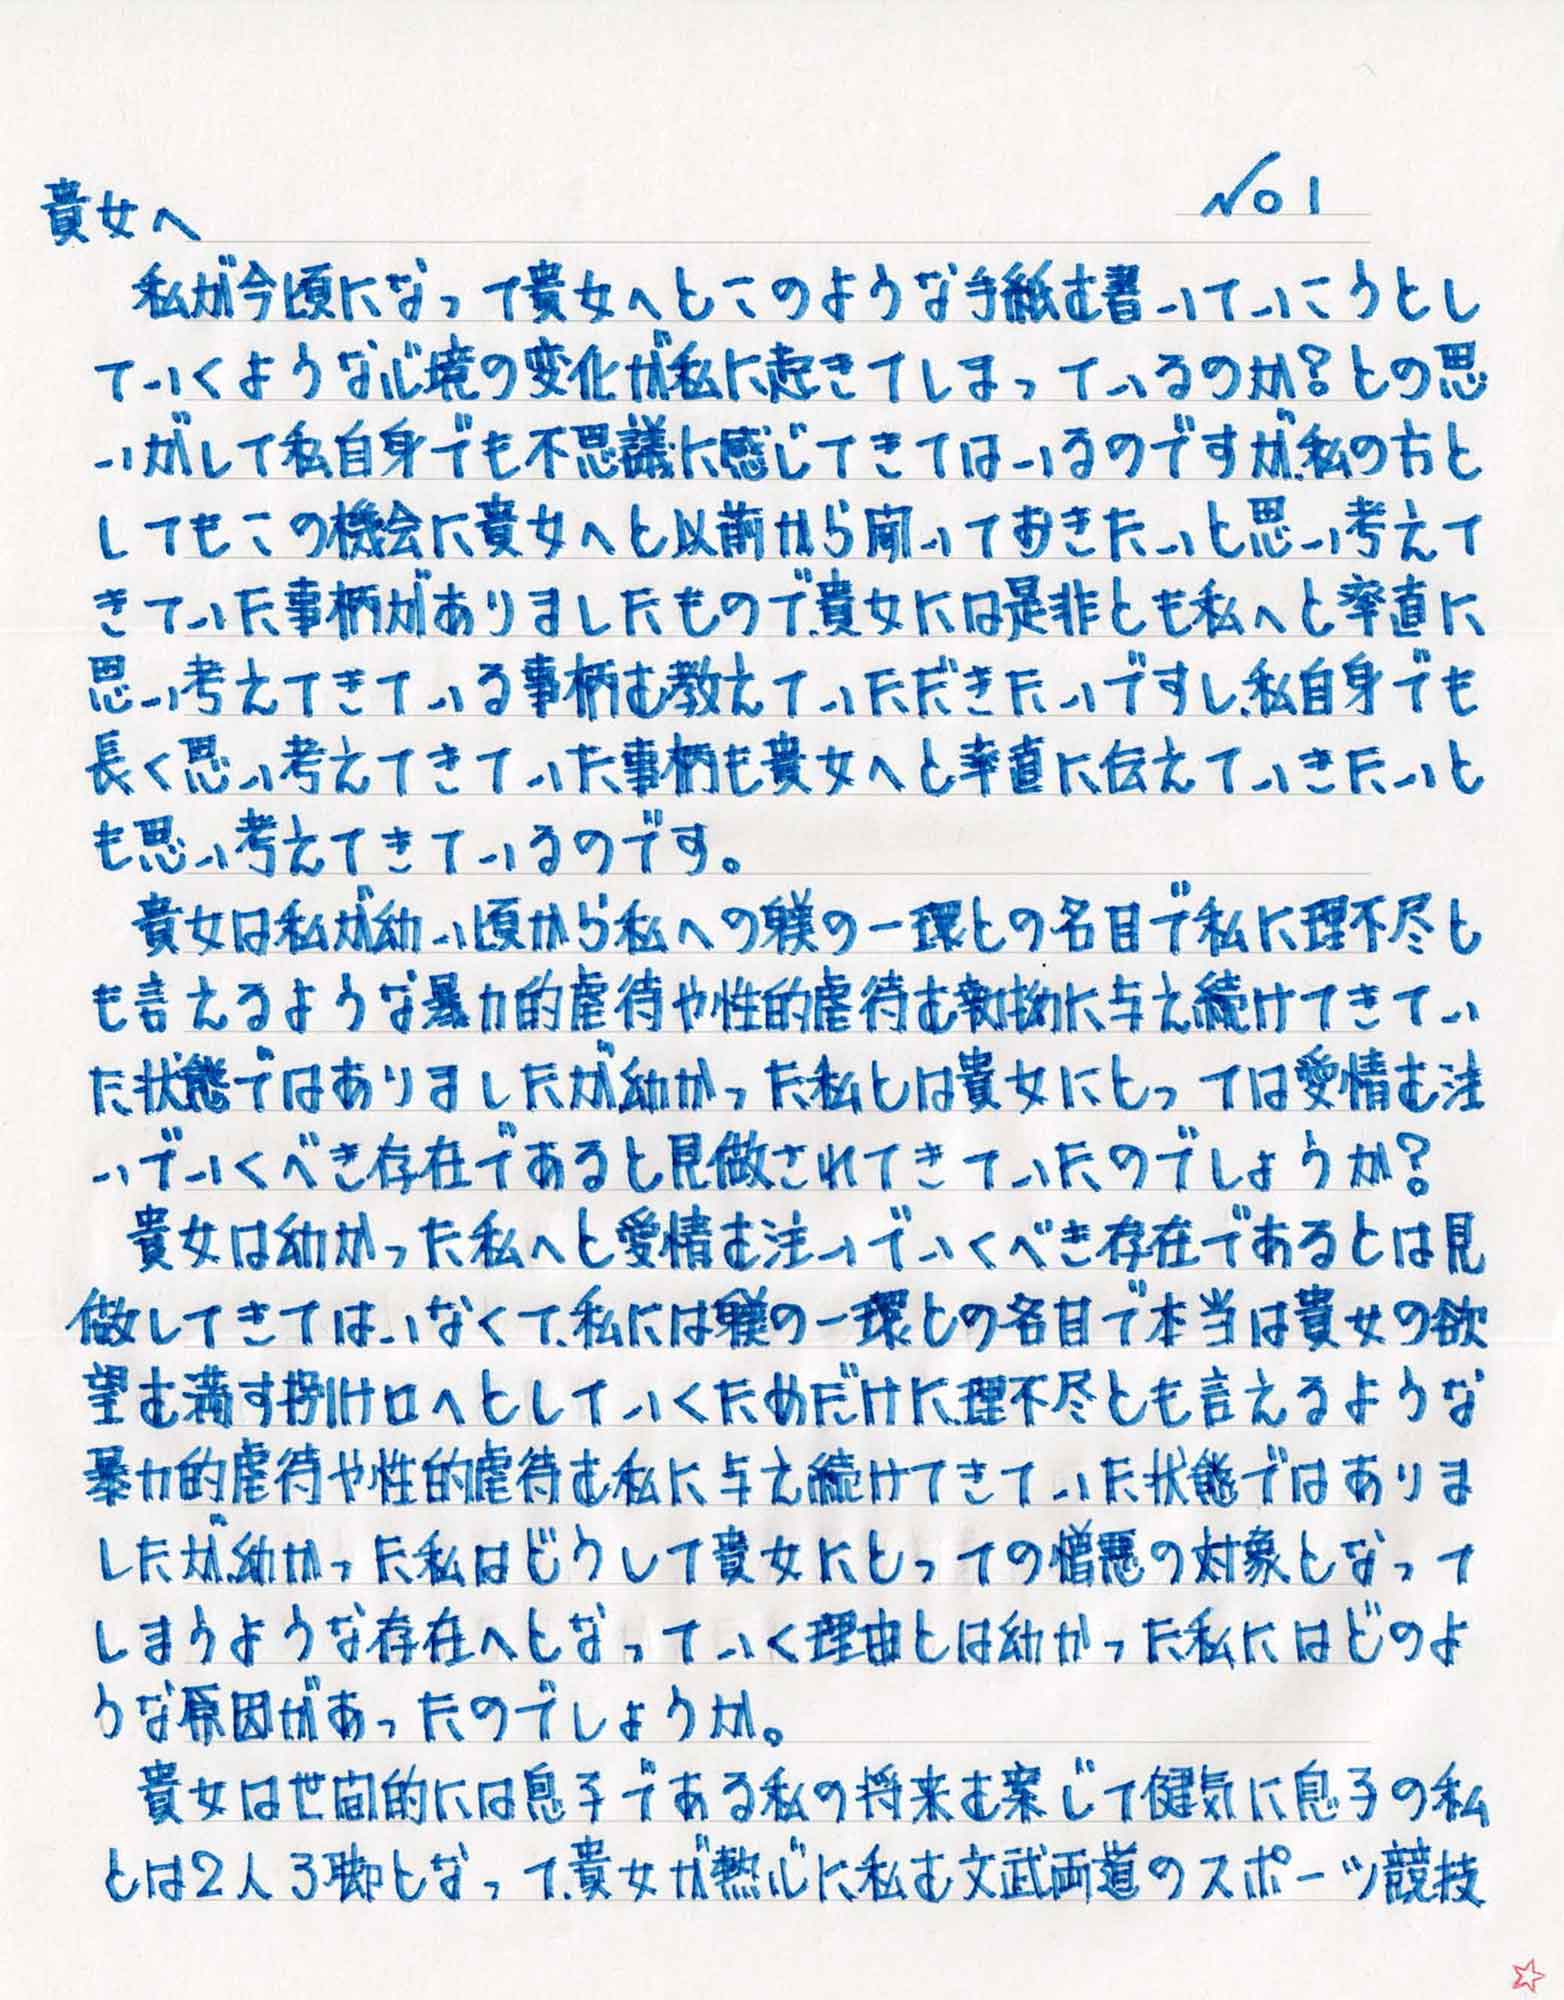 No 1
貴女へ
私が今頃になって貴女へとこのような手紙を書いていこうとし
ていくような心境の変化が私に起きてしまっているのか?との思
いがして私自身でも不思議に感じてきてはいるのですが、私の方と
してもこの機会に貴女へと以前から伺っておきたいと思い考えて
きていた事柄がありましたもので、貴女には是非とも私へと率直に
思い考えてきている事柄を教えていただきたいですし、私自身でも
長く思い考えてきていた事柄も貴女へと率直に伝えていきたいと
も思い考えてきているのです。
貴女は私が幼い頃から私への躾の一環との名目で私に理不尽と
も言えるような暴力的虐待や性的虐待を執拗に与え続けてきてい
た状態ではありましたが幼かった私とは貴女にとっては愛情を注
いでいくべき存在であると見做されてきていたのでしょうか?
貴女は幼かった私へと愛情を注いでいくべき存在であるとは見
做してきてはいなくて、私には躾の一環との名目で本当は貴女の欲
望を満す捌け口へとしていくためだけに、理不尽とも言えるような
暴力的虐待や性的虐待を私に与え続けてきていた状態ではありま
したが、幼かった私はどうして貴女にとっての憎悪の対象となって
しまうような存在へとなっていく理由とは幼かった私にはどのよ
うな原因があったのでしょうか。
貴女は世間的には息子である私の将来を案じて健気に息子の私
とは2人3脚となって、貴女が熱心に私を文武両道のスポーツ競技